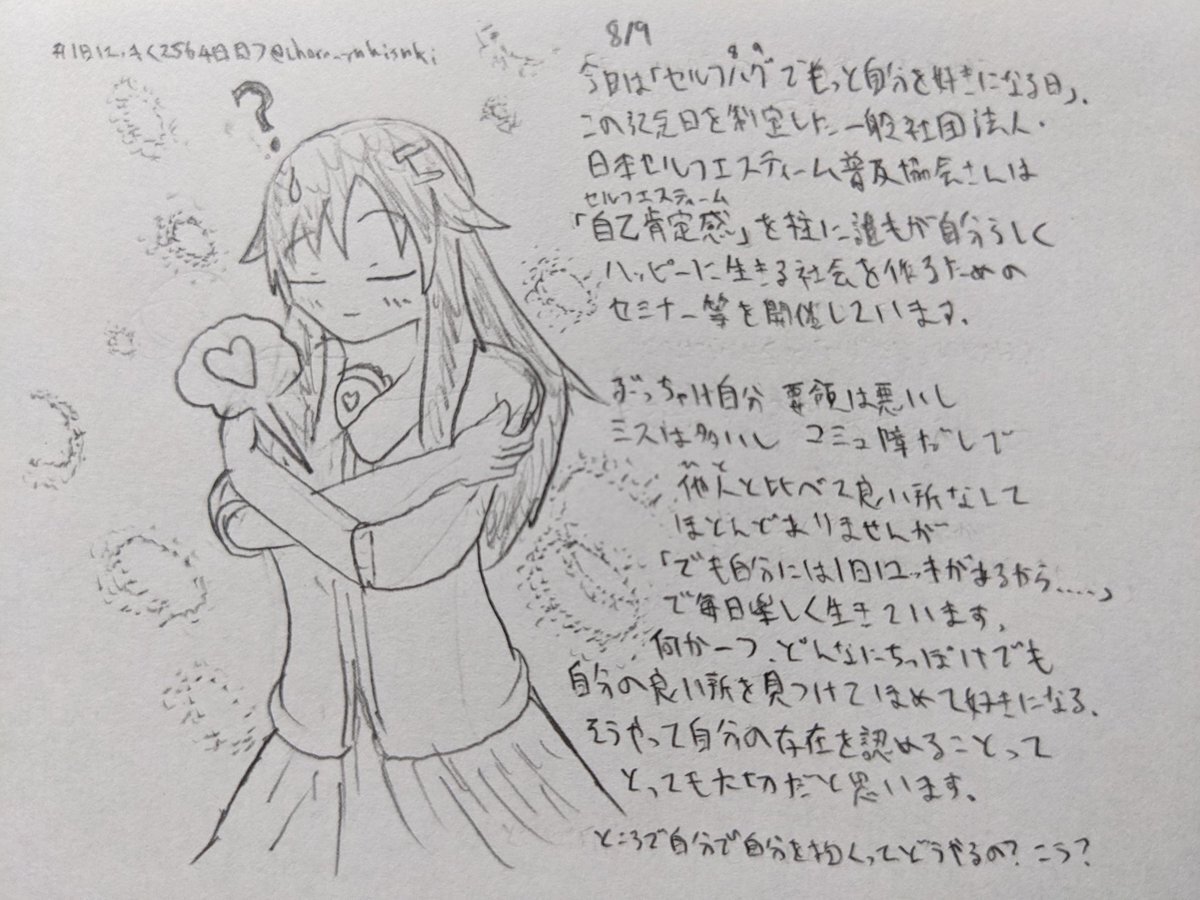 #1日1ユッキ(2564日目) @choro_yukisuki
8/9
8 9
今日は「セルフハグでもっと自分を好きになる日」、
この記念日を制定した一般社団法人・
日本セルフエスティーム普及協会さんは
セルフエスティーム
「自己肯定感」を柱に誰もが自分らしく
ハッピーに生きる社会を作るための
セミナー等を開催しています。
ぶっちゃけ自分 要領は悪いし
ミスは多いし コミュ障だしで
ひと
他人と比べて良い所なんて
ほとんどありませんが
「でも自分には1日1ユッキがあるから……」
で毎日楽しく生きています。
何か一つ、どんなにちっぽけでも
自分の良い所を見つけてほめて好きになる、
そうやって自分の存在を認めることって
とっても大切だと思います。
ところで自分で自分を抱くってどうやるの?こう?
?